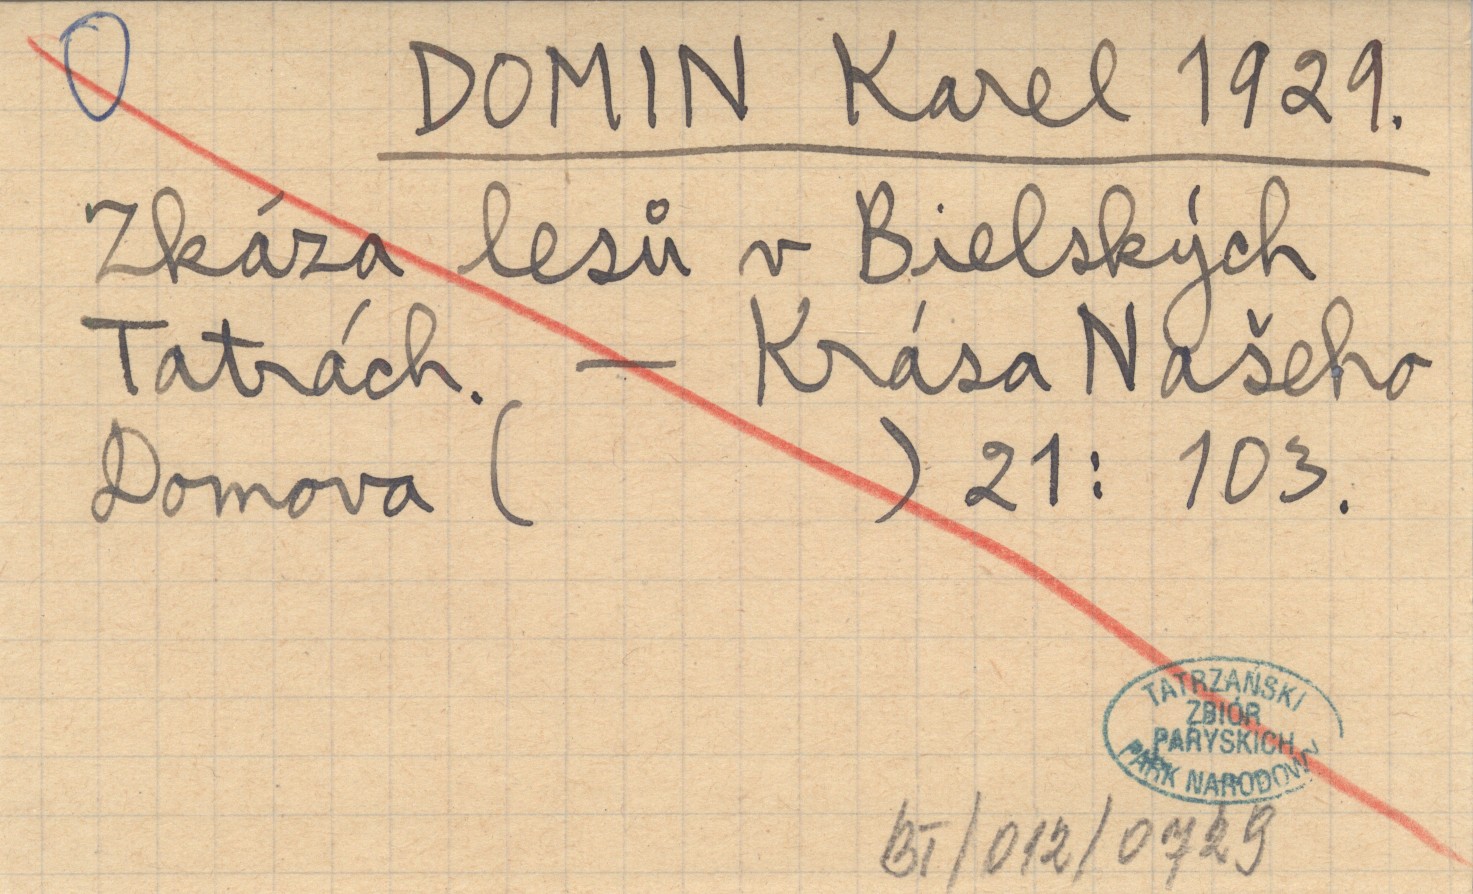 DOMIN Karel 1929.
Zkáza lesů v Bielských
Tatrách. — Krása Našeho
Domova ( ) 21: 103.
TATRZAŃSKI
ZBIÓR
PARYSKICH
PARK NARODOWY
BT/012/0729